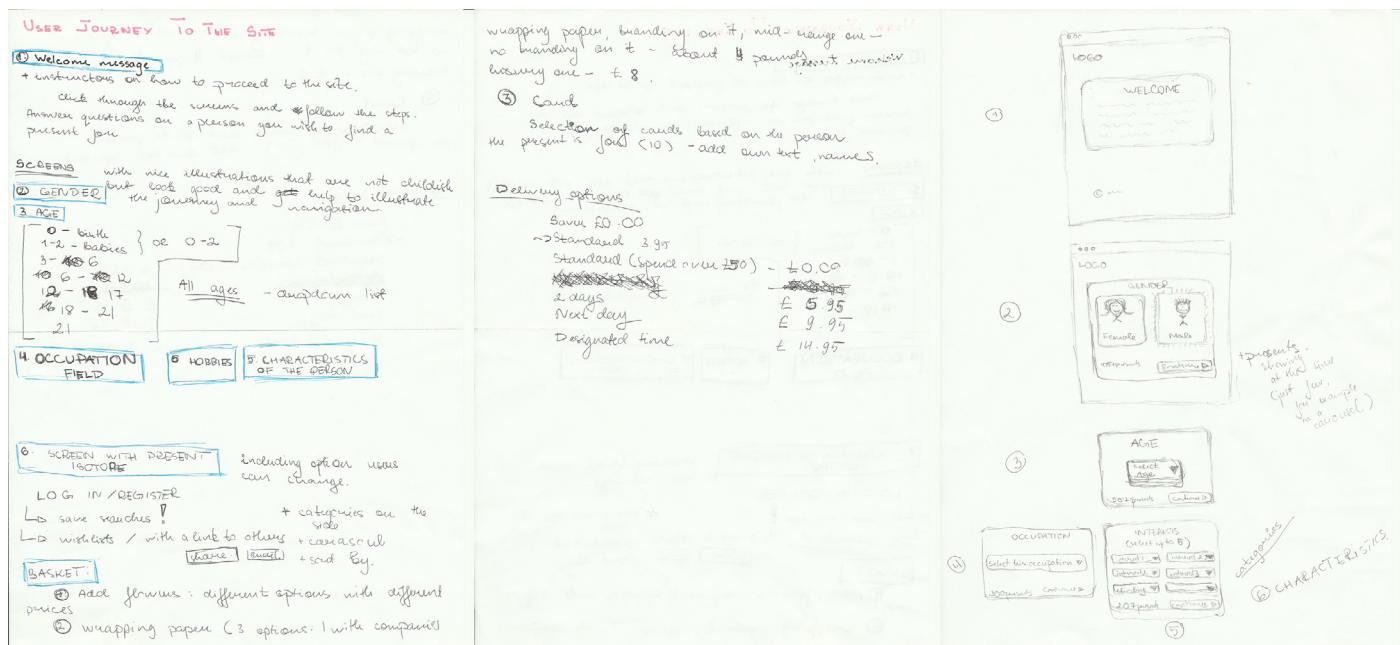 USER JOURNEY TO THE SITE
① Welcome message
+ instructions on how to proceed to the site.
click through the screens and follow the steps.
Answer questions on a person you wish to find a
present for
SCREENS
with nice illustrations that are not childish
but look good and help to illustrate
the journey and navigation
② GENDER
3. AGE
0 – birth
1-2 – babies } or 0-2
3 – 6
6 – 12
12 – 17
18 – 21
21
All ages – dropdown list
4. OCCUPATION
FIELD
5 HOBBIES
5. CHARACTERISTICS
OF THE PERSON
6. SCREEN WITH PRESENT
including option users
can change.
LOG IN / REGISTER
↳ save searches!
+ categories on the
side
↳ wishlists / with a link to others
+ carasoul
share.
+ sort By.
BASKET:
① Add flowers: different options with different
prices
② wrapping paper (3 options: 1 with companies
wrapping paper, branding on it, mid-range one –
no branding on it – about 4 pounds
luxury one – £ 8.
③ Card
Selection of cards based on the person
the present is for (10) – add own text, names.
Delivery options
Saver £0.00
→ Standard 3.95
Standard (spend over £50) – £0.00
2 days £ 5.95
Next day £ 9.95
Designated time £ 14.95
①
LOGO
WELCOME
②
LOGO
GENDER
Female
Male
Continue
+ presents
showing
at the time
(just few,
for example
in a
carousel)
③
AGE
Select
Age
continue
④
OCCUPATION
Select his occupation
continue
INTERESTS
(select up to 8)
207 presents
continue
⑤
categories
⑥ CHARACTERISTICS